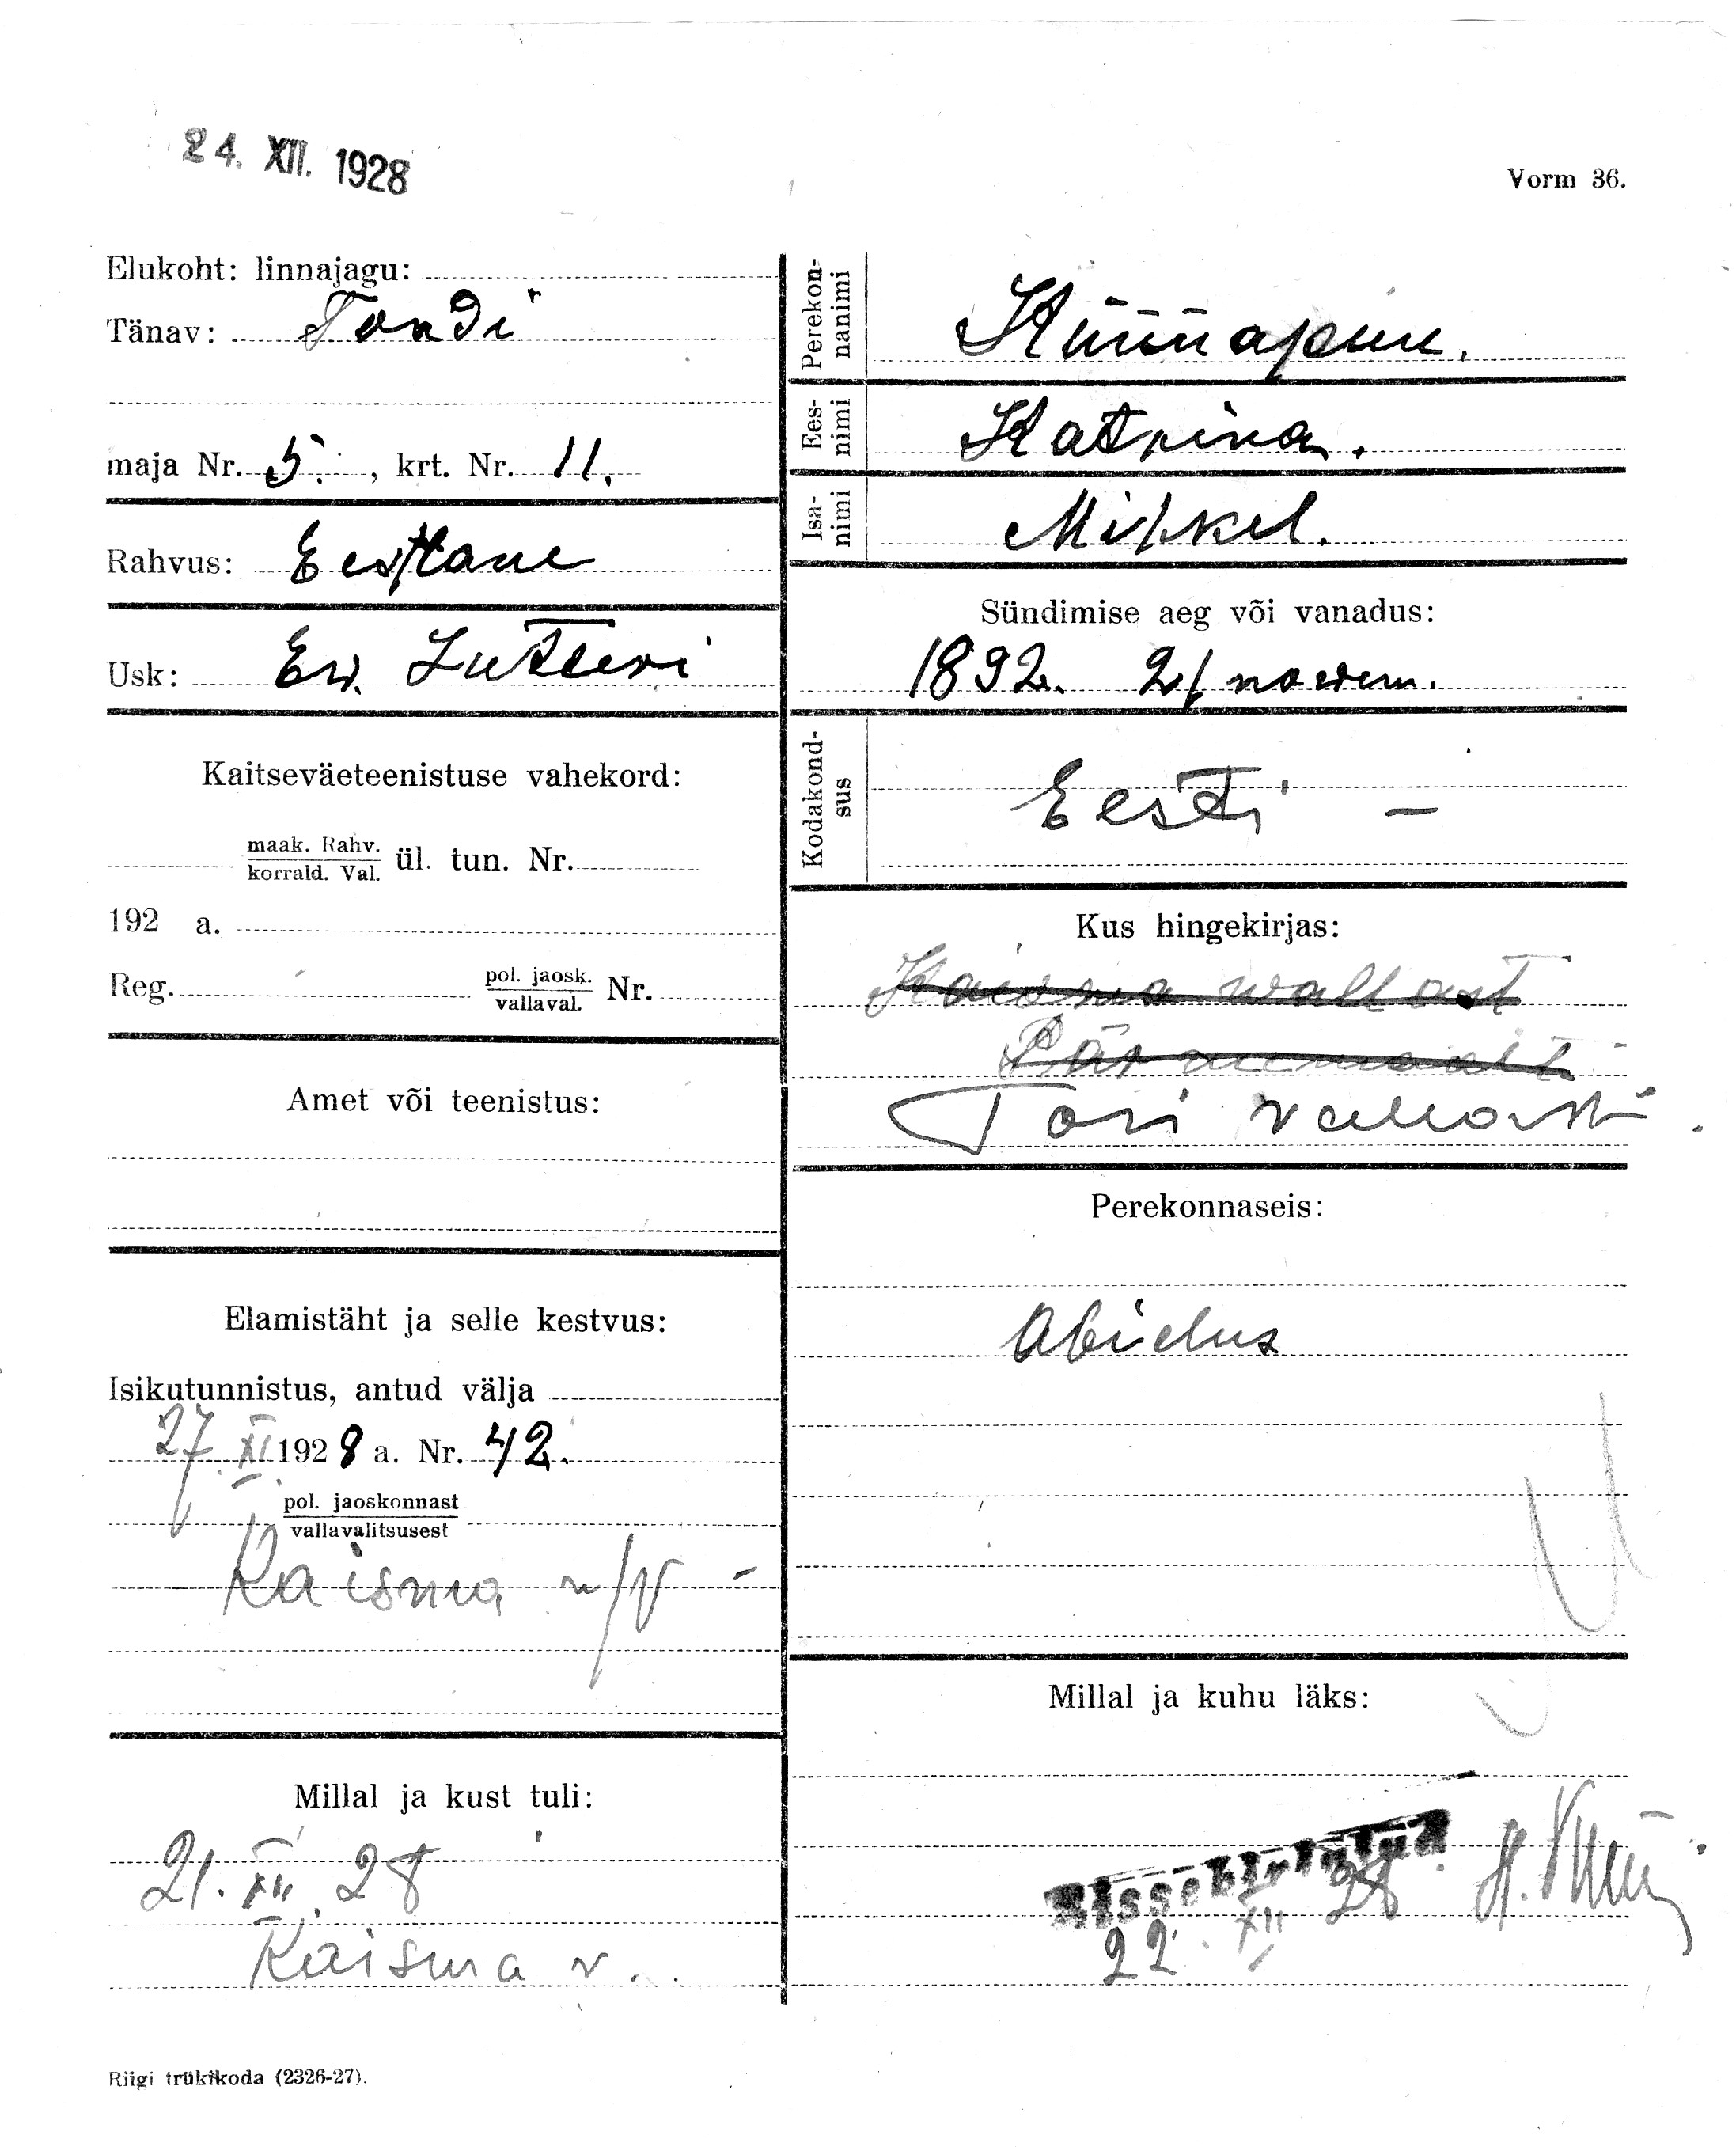 24. XII. 1928
Vorm 36.
Elukoht: linnajagu:
Tänav: Tondi
maja Nr. 5. , krt. Nr. 11.
Rahvus: Eestlane
Usk: Ew. Lutteri
Kaitseväeteenistuse vahekord:
maak. Rahv.
korrald. Val. ül. tun. Nr.
192 a.
Reg. pol. jaosk.
vallaval. Nr.
Amet või teenistus:
Elamistäht ja selle kestvus:
Isikutunnistus, antud välja
27. XI 1928 a. Nr. 42.
pol. jaoskonnast
vallavalitsusest
Kaisma v/v -
Millal ja kust tuli:
21. XII. 28
Kaisma v.
Perekon-
nanimi
Künnapuu.
Ees-
nimi
Katrina.
Isa-
nimi
Mihkel.
Sündimise aeg või vanadus:
1892. 21 nowem.
Kodakond-
sus
Eesti -
Kus hingekirjas:
Kaisma wallast
Pärnumaalt
Tori vallast.
Perekonnaseis:
Abielus
Millal ja kuhu läks:
Sissekirjutud
22. XII 28.
Riigi trükikoda (2326-27).